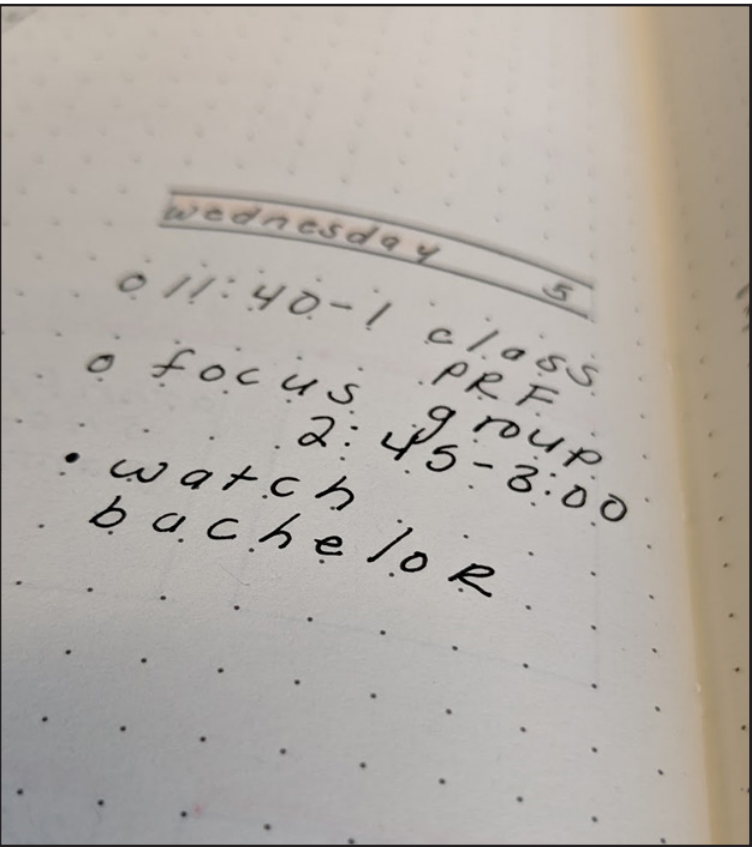 wednesday 5
o 11:40-1 class
PRF
o focus group
2:45-3:00
• watch
bachelor